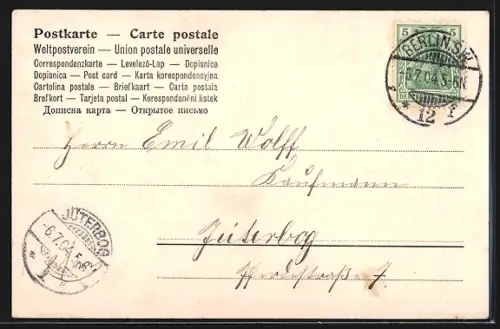 Postkarte — Carte postale
Weltpostverein — Union postale universelle
Correspondenzkarte — Levelező-Lap — Dopisnice
Dopisnica — Post card — Karta korespondencyjna
Cartolina postale — Briefkaart — Carta postala
Brefkort — Tarjeta postal — Korespondenční lístek
Дописна карта — Открытое письмо
5 5
BERLIN S.W.
5.7.04. 5-6N
* 12 F
Herrn Emil Wolff
Kaufmann
Jüterbog
Pferdestraße 7.
JÜTERBOG
6.7.04. 5-6
* 1